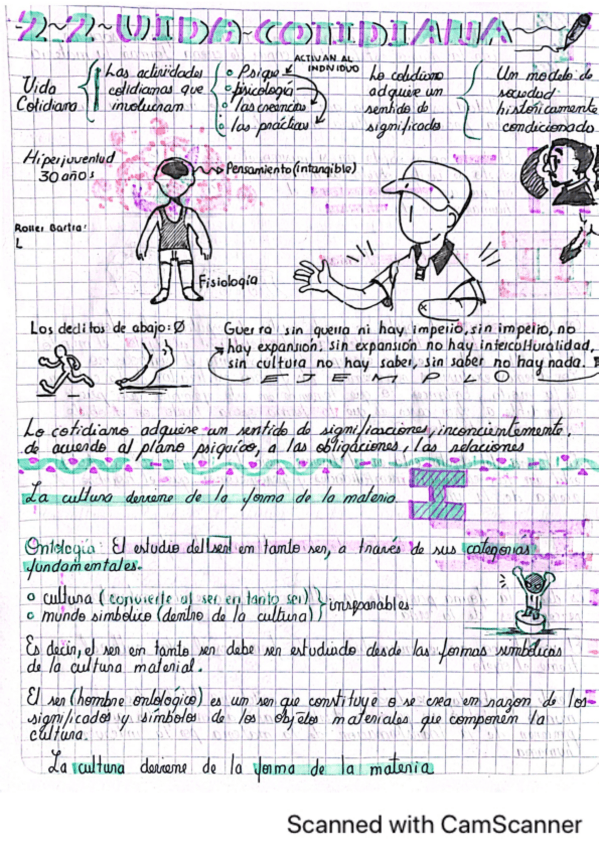 2-2-VIDA-COTIDIANA
Vida Cotidiana
Las actividades cotidianas que involucran
ACTIVAN AL INDIVIDUO
o Psique
o psicología
o las creencias
o las prácticas
Lo cotidiano adquiere un sentido de significado
Un modelo de sociedad históricamente condicionado
Hiperjuventud
30 años
Pensamiento (intangible)
Fisiología
Los deditos de abajo: Ø
Guerra sin guerra ni hay imperio, sin imperio, no
hay expansión, sin expansión no hay interculturalidad,
sin cultura no hay saber, sin saber no hay nada.
EJEMPLO
Lo cotidiano adquiere un sentido de significaciones, inconcientemente,
de acuerdo al plano psíquico, a las obligaciones, las relaciones
La cultura deviene de la forma de la materia
Ontología: El estudio del ser en tanto ser, a través de sus categorías
fundamentales.
o cultura (convierte al ser en tanto ser)
o mundo simbólico (dentro de la cultura)
inseparables
Es decir, el ser en tanto ser debe ser estudiado desde las formas simbólicas
de la cultura material.
El ser (hombre ontológico) es un ser que constituye o se crea en razon de los
significados y símbolos de los objetos materiales que componen la
cultura.
La cultura deviene de la forma de la materia
Scanned with CamScanner